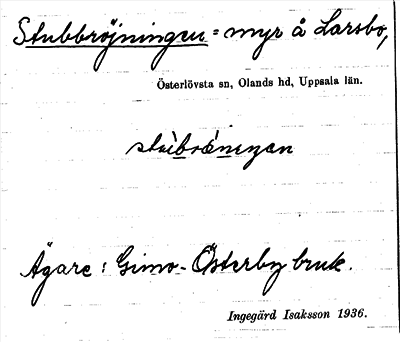 Stubbröjningen = myr å Larsbo,
Österlövsta sn, Olands hd, Uppsala län.
stùbrǿnιŋan
Ägare: Gimo-Österby bruk.
Ingegärd Isaksson 1936.